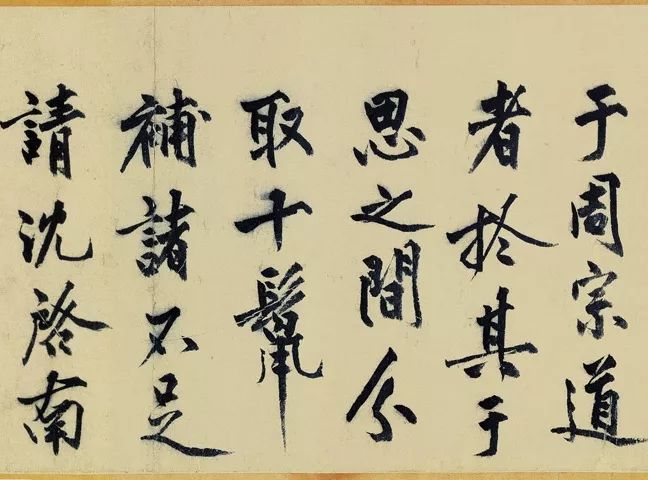 于周宗道
者於其于
思之間分
取十鬣
補諸不足
請沈啓南